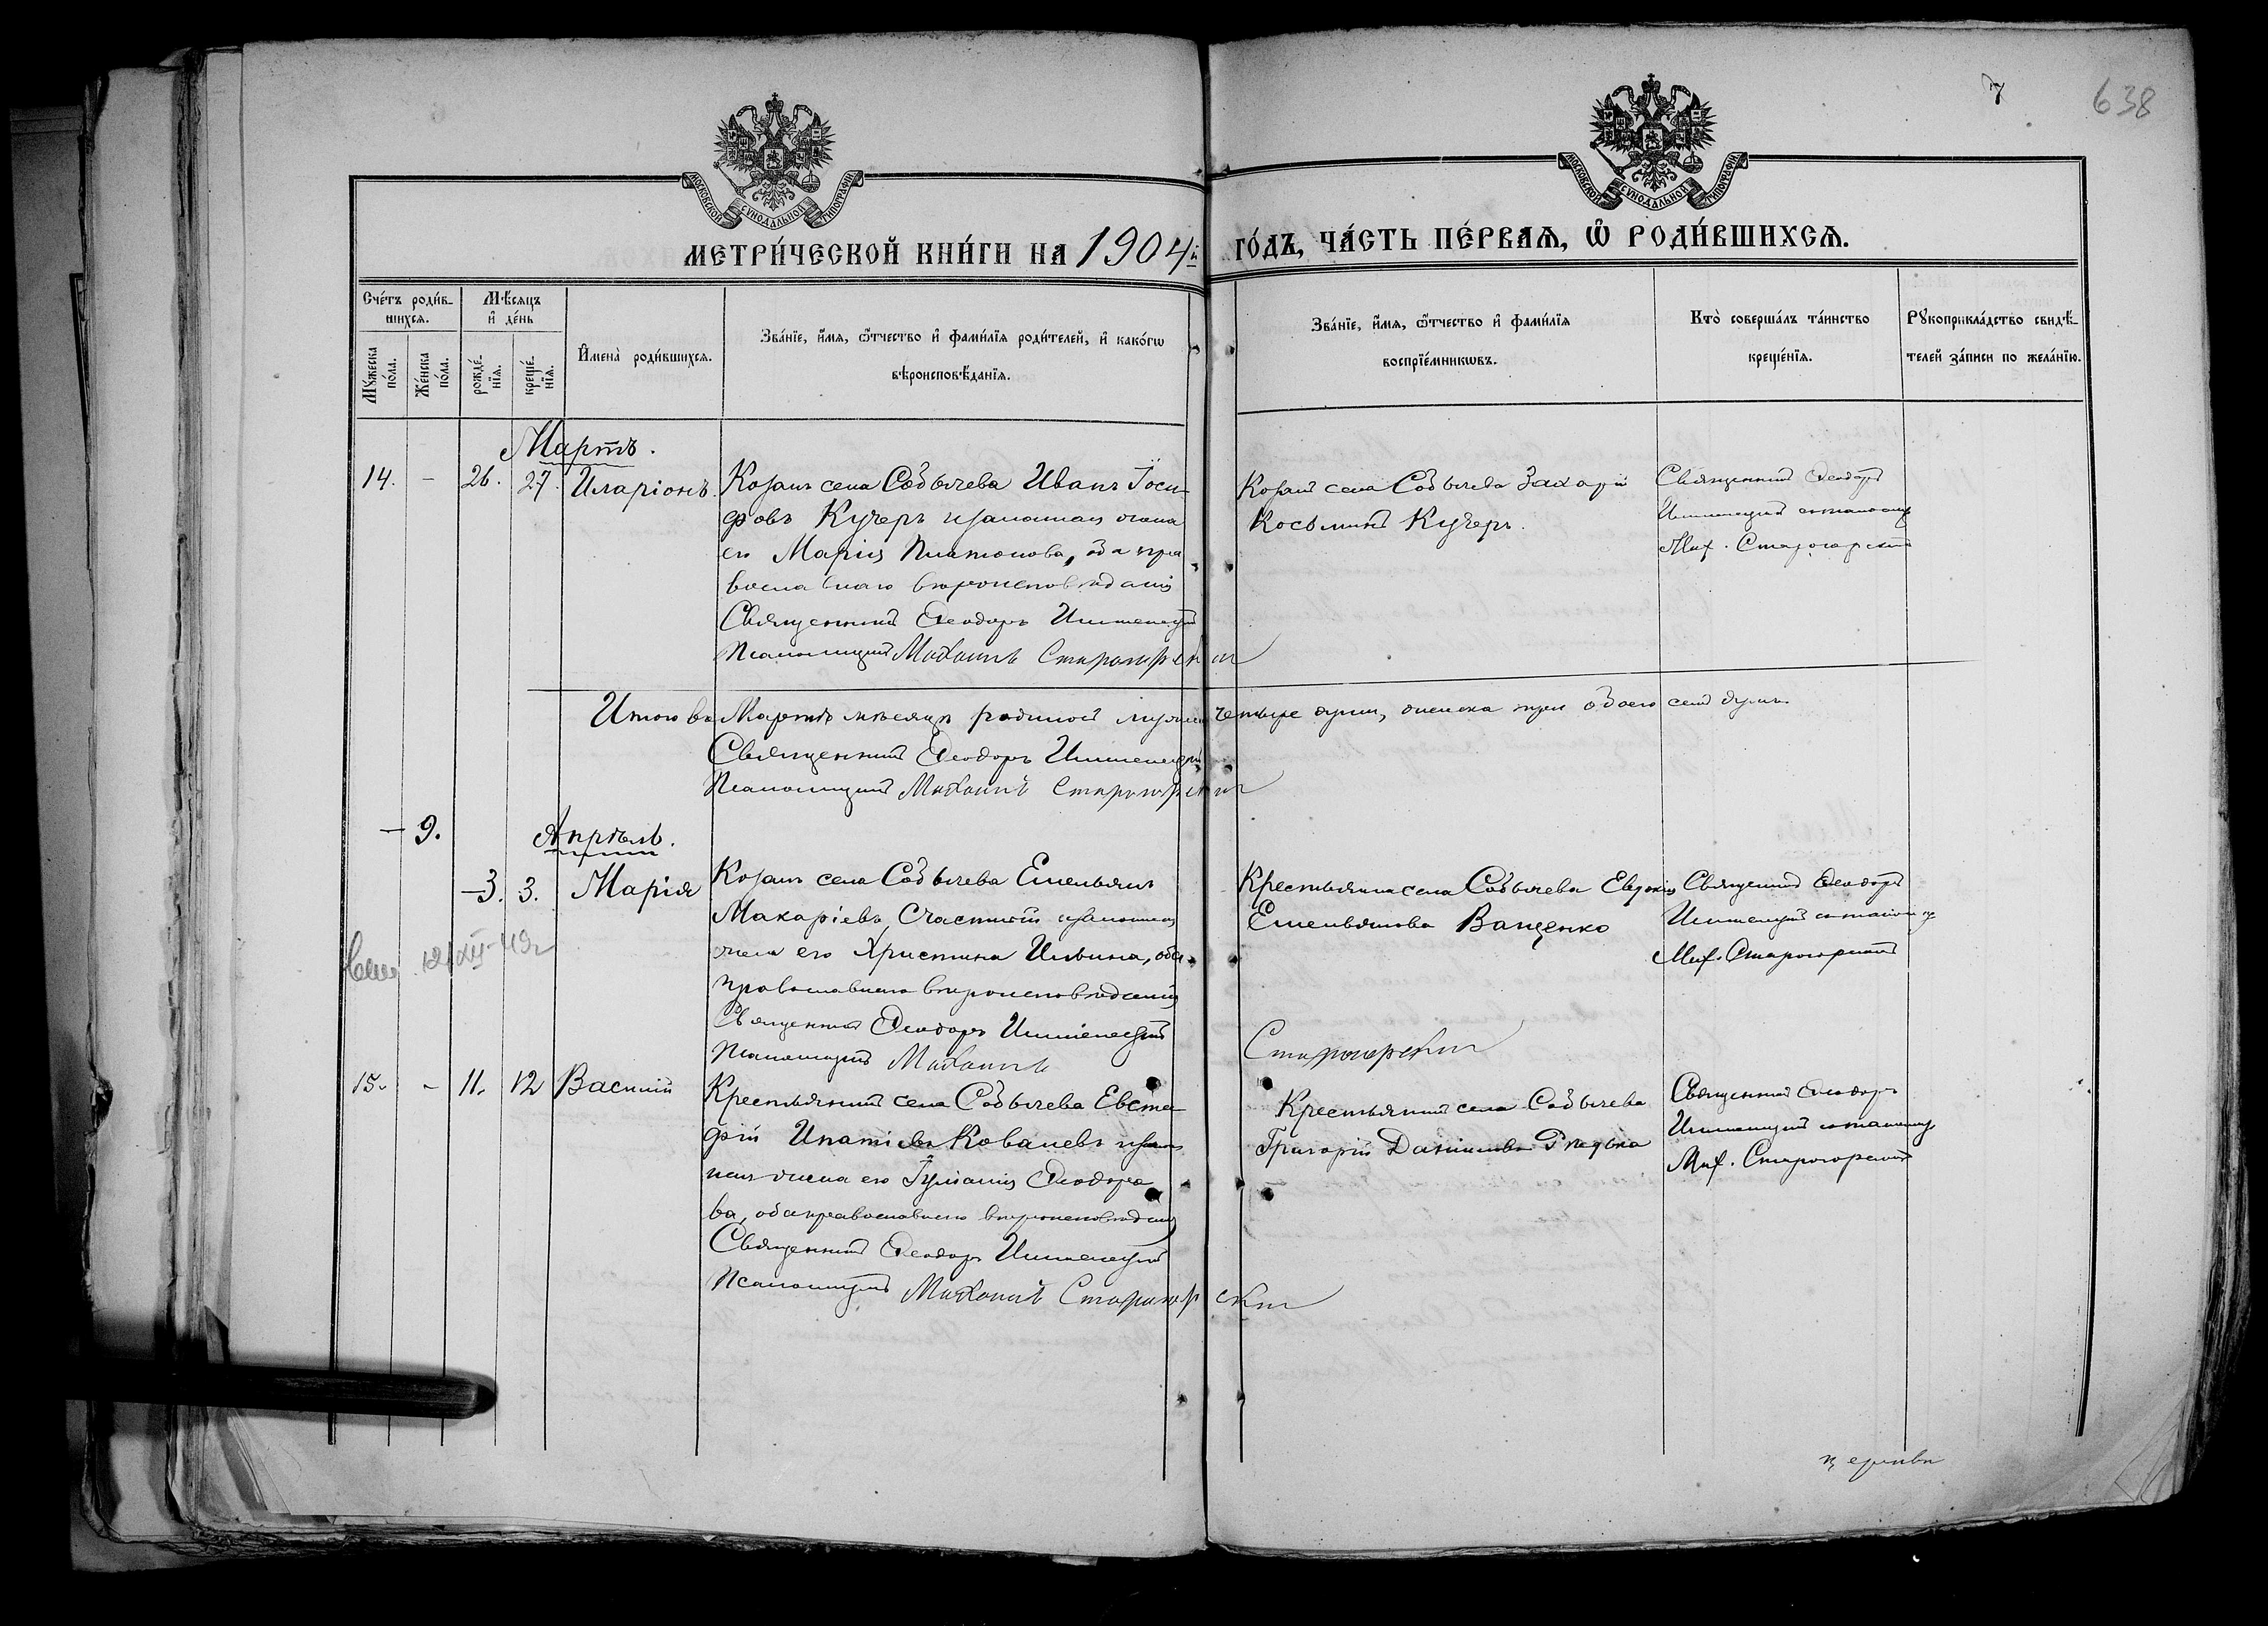 7
638
МОСКОВСКОЙ СѴНОДАЛЬНОЙ ТИПОГРАФІИ
МОСКОВСКОЙ СѴНОДАЛЬНОЙ ТИПОГРАФІИ
МЕТРИ́ЧЕСКОЙ КНИ́ГИ НА 1904й ГО́ДЪ, ЧА́СТЬ ПЕ́РВАѦ, Ѡ҆ РОДИ́ВШИХСѦ.
Сче́тъ роди́в-
шихсѧ.
Мꙋ́жеска по́ла.
Же́нска по́ла.
Мѣ́сѧцъ
и҆ де́нь
рожде́-нїѧ.
креще́-нїѧ.
И҆мена̀ роди́вшихсѧ.
Зва́нїе, и҆́мѧ, ѻ҆́тчество и҆ фами́лїѧ роди́телей, и҆ како́гѡ
вѣроисповѣ́данїѧ.
Зва́нїе, и҆́мѧ, ѻ҆́тчество и҆ фами́лїѧ
воспрїе́мникѡвъ.
Кто̀ соверша́лъ та́инство
креще́нїѧ.
Рꙋкоприкла́дство свидѣ́-
телей за́писи по жела́нїю.
Мартъ.
14. - 26. 27. Иларіонъ.
Козакъ села Собычева Иванъ Іоси-
фовъ Кучеръ и законная жена
его Марія Платонова, оба пра
вославнаго вѣроисповѣданія
Священникъ Ѳеодоръ
Псаломщикъ Михаилъ Старогорскій
Козакъ села Собычева Захарій
Косьминъ Кучеръ.
Священникъ Ѳеодоръ
съ псаломщ
Мих. Старогорскимъ
Итого въ Мартѣ мѣсяцѣ родилось мужска четыре души, женска три обоего семь душъ.
Священникъ Ѳеодоръ
Псаломщикъ Михаилъ Старогорскій
Апрѣль.
- 9. 3. 3. Марія
Козакъ села Собычева Емельянъ
Макаріевъ Счастный и законная
жена его Христина Ильина, оба
православнаго вѣроисповѣданія
Священникъ Ѳеодоръ
Псаломщикъ Михаилъ Старогорскій
Крестьянка села Собычева Евдокія
Емельянова Ващенко
Священникъ Ѳеодоръ
съ псаломщ
Мих. Старогорскимъ
15. - 11. 12 Василій
Крестьянинъ села Собычева Евста-
фій Ипатіевъ Ковалевъ и закон
ная жена его Іуліанія Ѳеодоро
ва, оба православнаго вѣроисповѣданія
Священникъ Ѳеодоръ
Псаломщикъ Михаилъ Старогорскій
Крестьянинъ села Собычева
Григорій Даніиловъ Гнедька
Священникъ Ѳеодоръ
съ псаломщ
Мих. Старогорскимъ
церкви